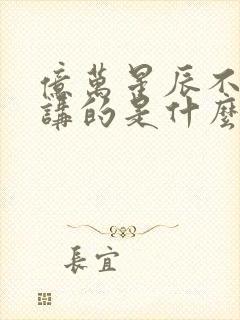 億萬星辰不
講的是什麼
長宜